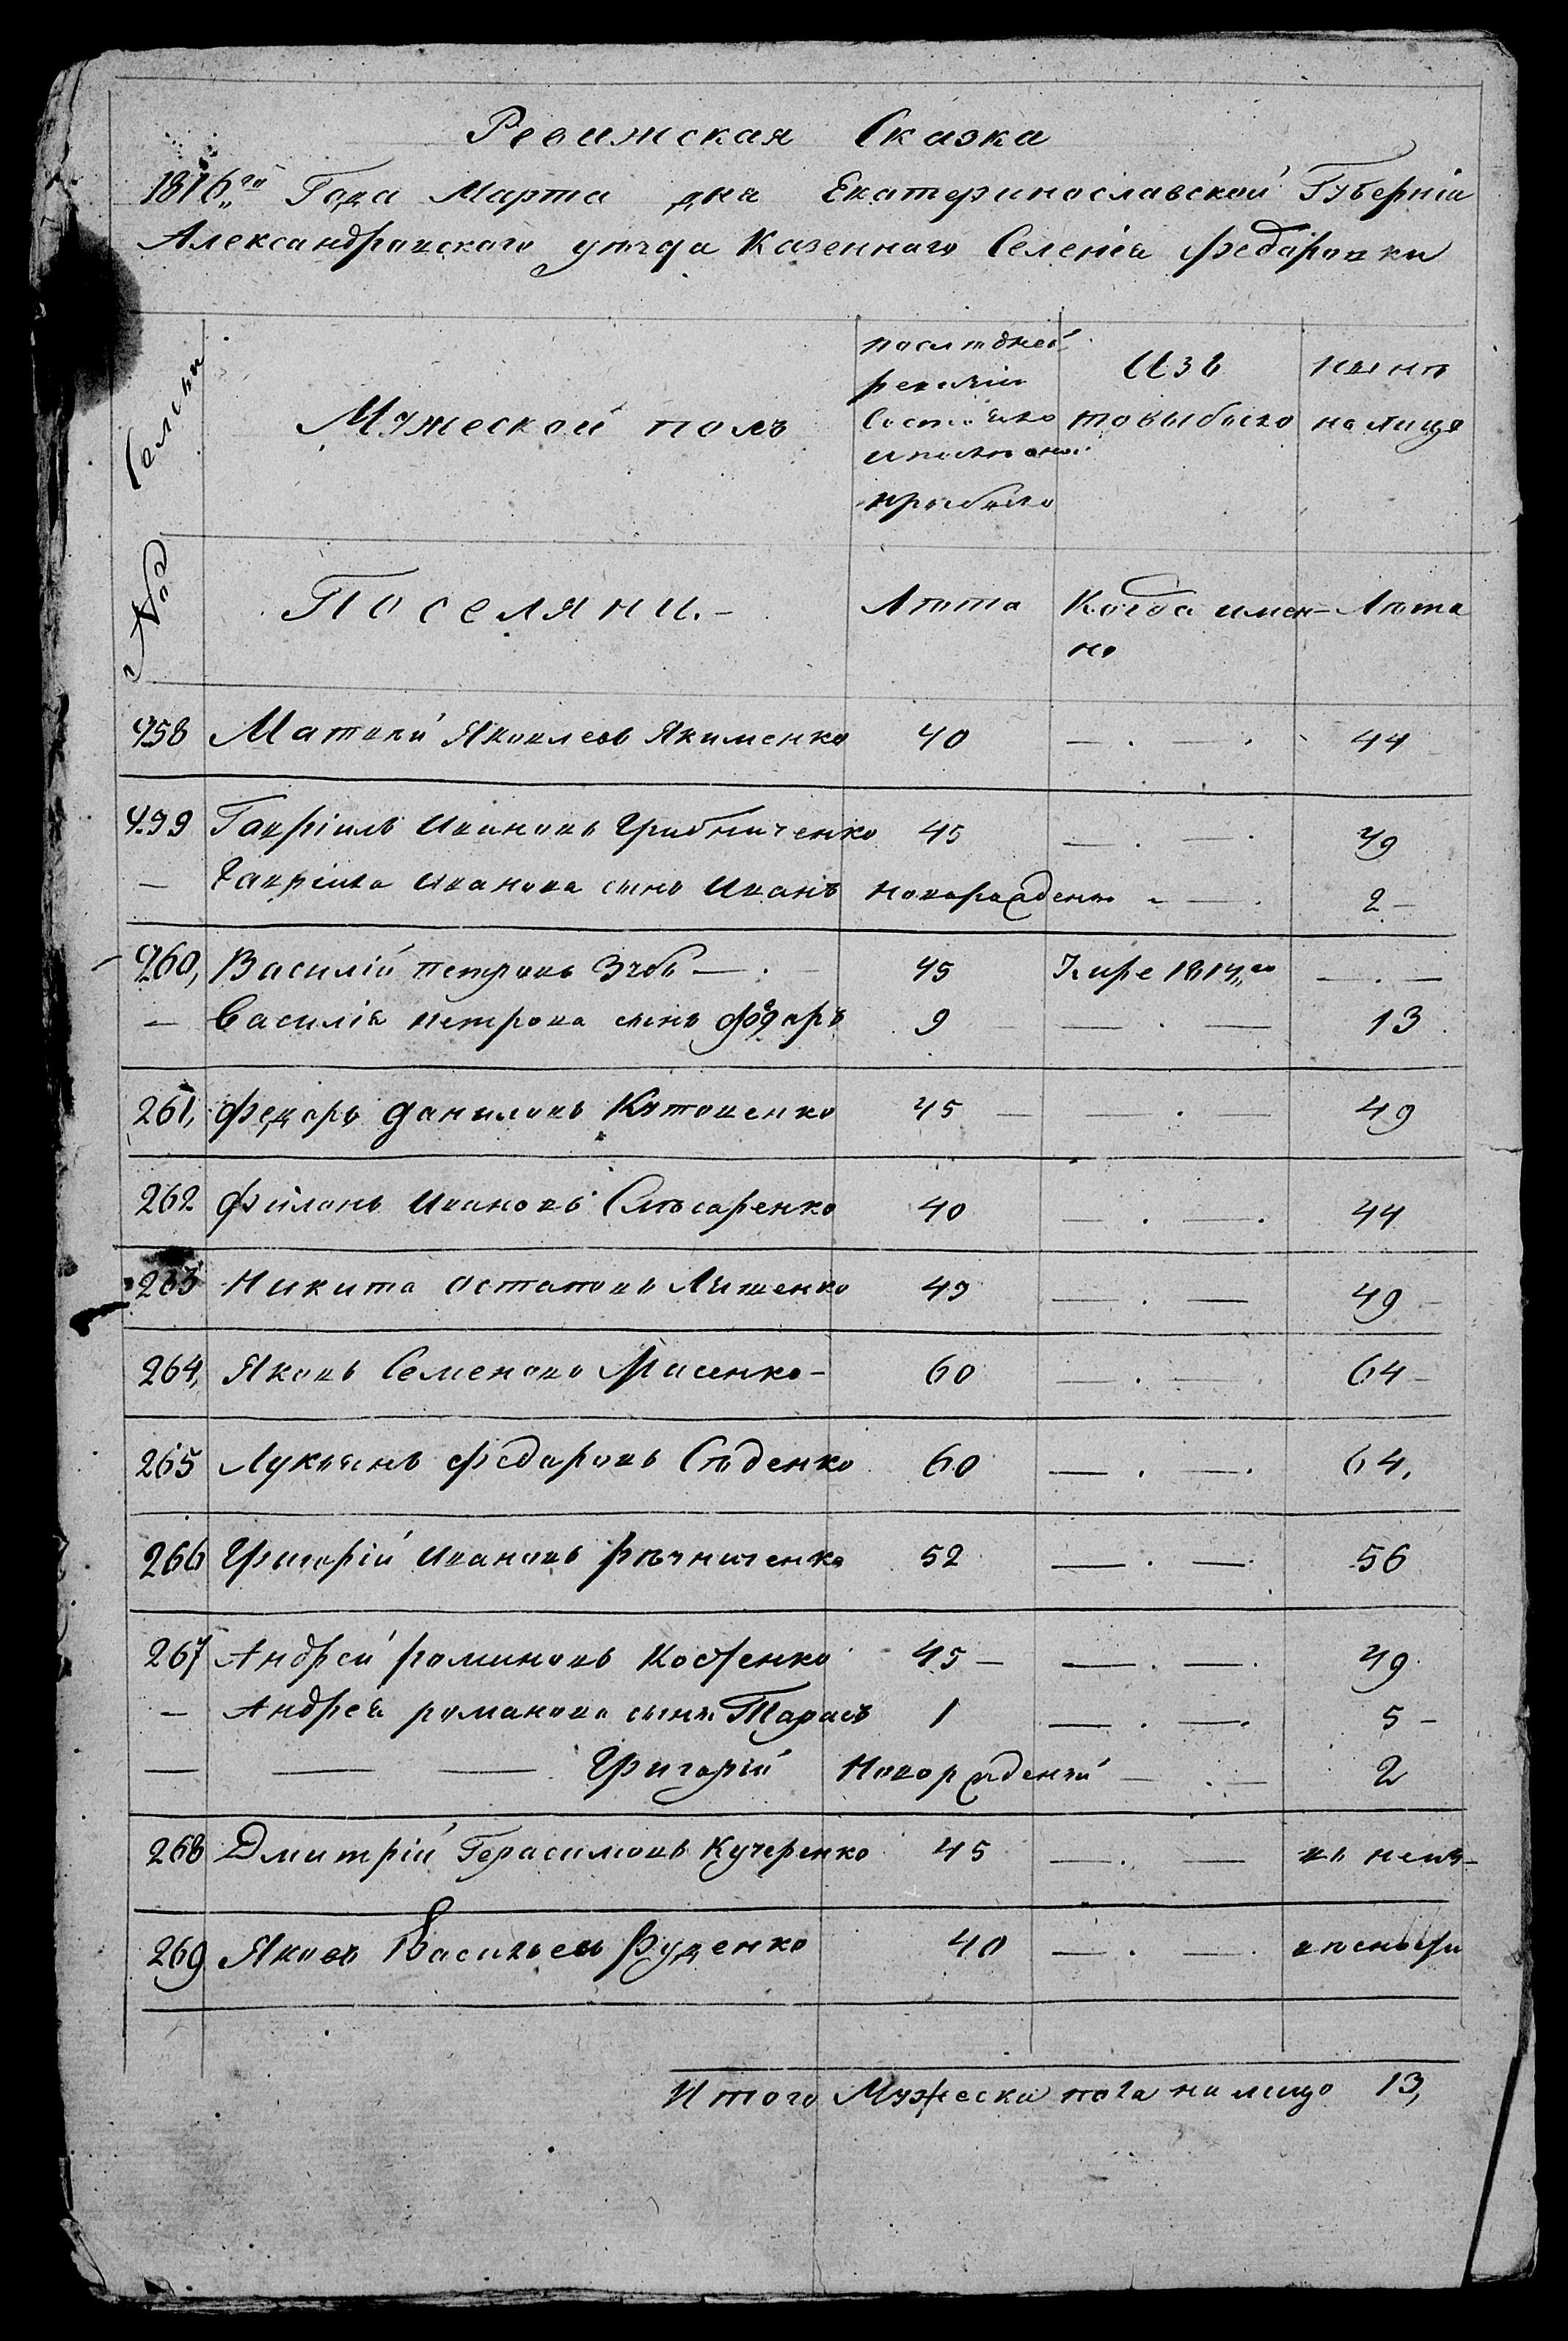 Ревижская Сказка
1816го Года Марта дня Екатеринославской Губерніи
Александровскаго уѣзда Казеннаго Селенія Федаровки
№ Семьи
Мужеской полъ
последней ревизіи состояло и после оной прибыло
Изъ того выбыло
ныне на лицо
Поселяни.
Лѣта
Когда имен-но
Лѣта
258 Матвей Яковлевъ Якименко 40 — . — . 44
259 Гавріилъ Ивановъ Грибниченко 45 — . — . 49
— Гавріила Иванова сынъ Иванъ новорожденъ - — . 2 —
260, Василій Петровъ Зубъ — . — 45 Умре 1814го — . —
— Василія Петрова сынъ Федаръ 9 — . — 13
261, Федаръ Даниловъ Котовенко 45 — — . — 49
262 Филонъ Ивановъ Слѣсаренко 40 — . — . 44
263 Никита Остаповъ Лишенко 45 — . — 49 —
264, Яковъ Семеновъ Мисенко — 60 — . — . 64 —
265 Лукъянъ Федаровъ Сѣденко 60 — . — . 64,
266 Григорій Ивановъ Рѣчниченко 52 — . — . 56
267 Андрей Романовъ Костенко 45 — — . — . 49
— Андрея Романова сынъ Тарасъ 1 — . — . 5 —
— — — Григорій Новорожденій — . — 2
268 Дмитрій Герасимовъ Кучеренко 45 — . —
269 Яковъ Васильевъ Руденко 40 — . — .
Итого Мужеска пола на лицо 13,